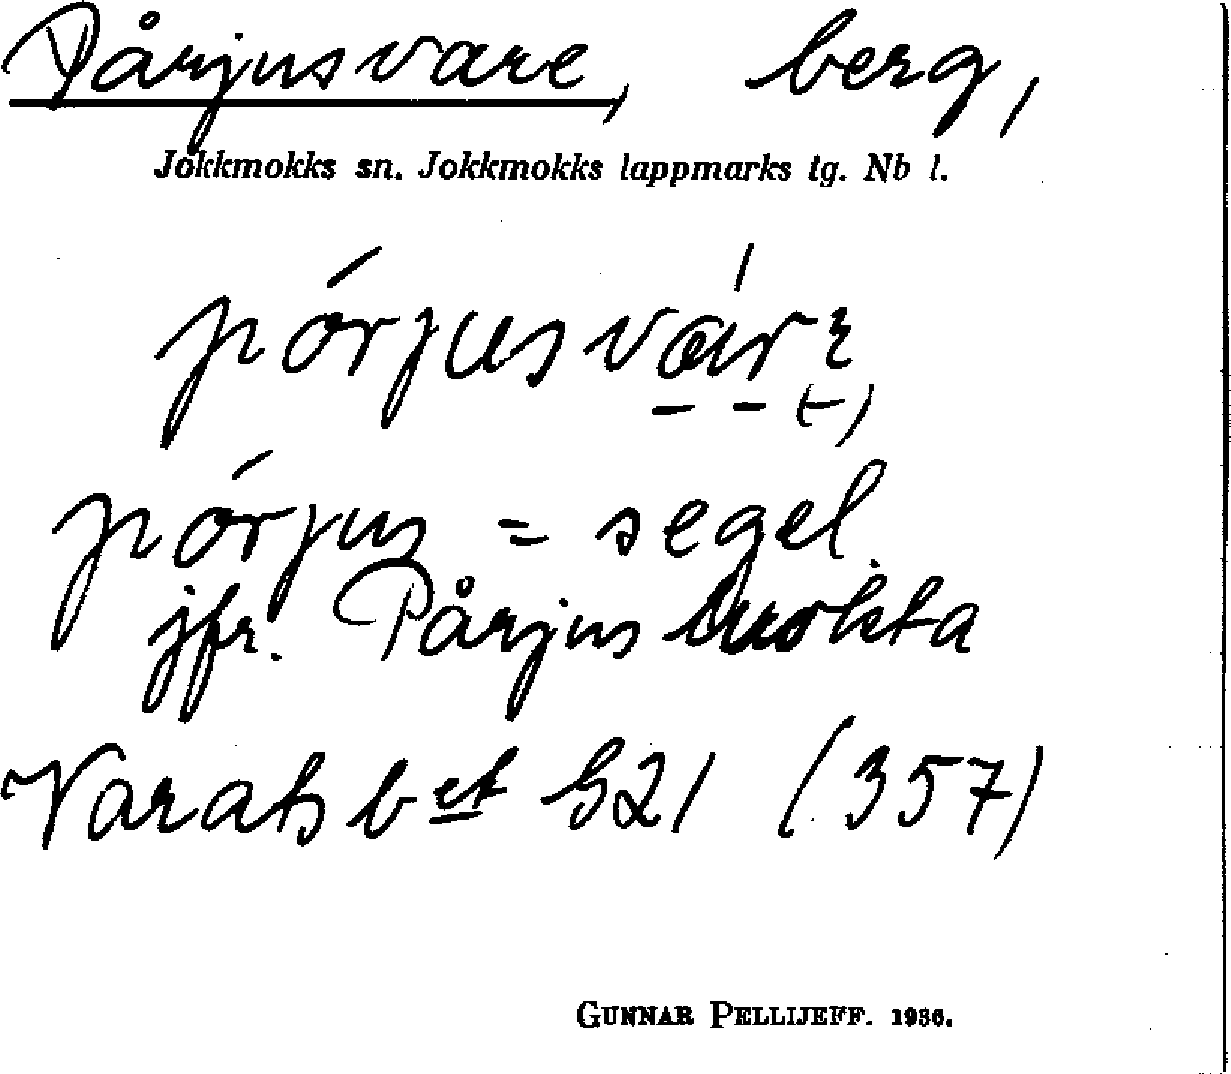 Pårjusvare, berg,
Jokkmokks sn. Jokkmokks lappmarks tg. Nb l.
pórjusvárɛ
(-)
pórjus = segel.
jfr. Pårjusluokta
Varats bet §21 (357)
GUNNAR PELLIJEFF. 1936.